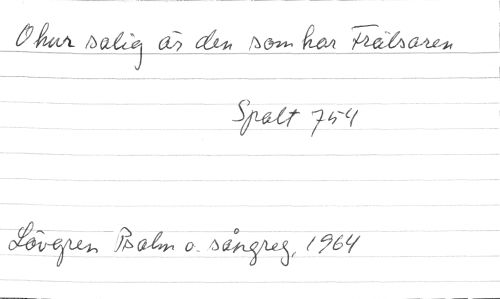 O hur salig är den som har Frälsaren
Spalt 754
Lövgren Psalm o. sångreg, 1964